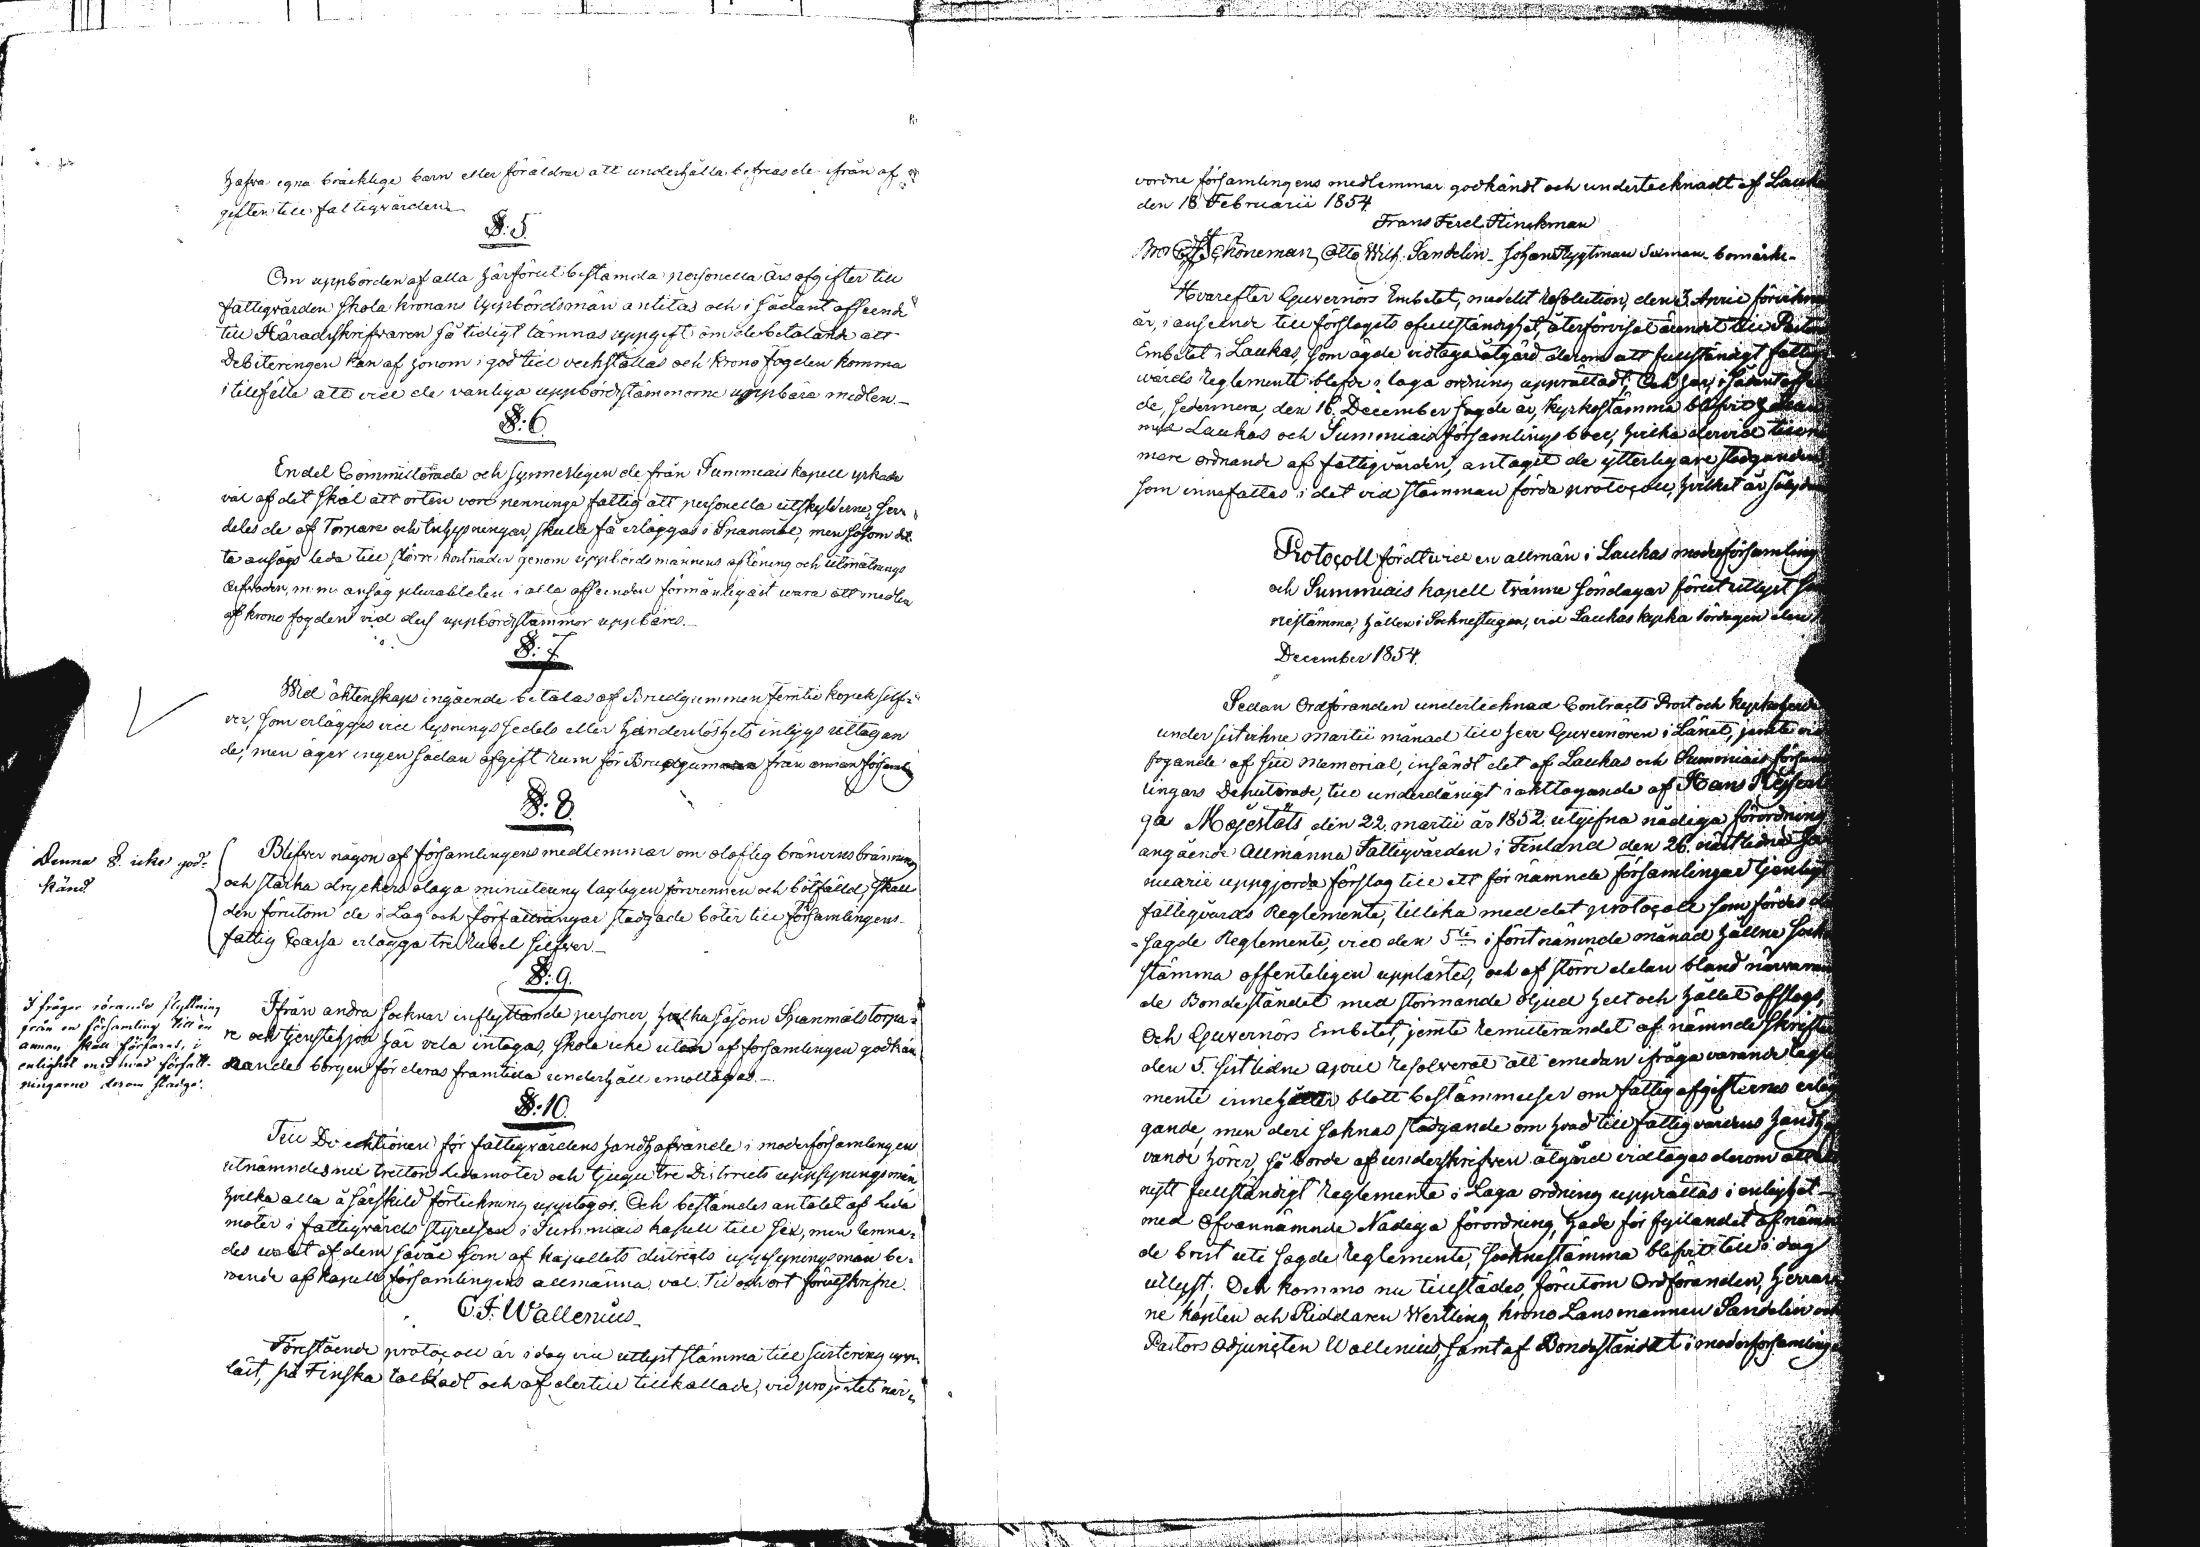 hafva egna bräcklige barn eller föräldrar att underhålla befrias de ifrån af
giften till fattigvården
§: 5.
Om uppbörden af alla härförut bestämda personella års afgifter till
fattigvården skola kronans Uppbördsmän anlitas och i sådant afseende
till Häradsskrifvaren så tidigt lämnas uppgift om de betalande att
Debiteringen kan af honom i god tid verkställas och krono fogden komma
i tillfälle att vid de vanliga uppbördsstämmorne uppbära medlen.
§: 6.
En del Committerade och synnerligen de från Summiais kapell yrkade
väl af det skäl att orten vore penninge fattig att personella utskylderne, sär
deles de af Torpare och Inhysningar, skulle få erläggas i Spannmål, men såsom det
ta ansågs leda till större kostnader genom uppbördsmännens aflöning och utmätnings
arfvoden, m: m: ansåg pluraliteten i alla afseenden förmånligast wara att medlen
af krono fogden vid dess uppbördsstämmor uppbäres.
§: 7
Wid äktenskaps ingående betalas af Brudgummen femtio kopek silf-
ver, som erlägges vid lysnings sedels eller hinderslöshets intygs uttagan
de, men äger ingen sådan afgift rum för Brudgum från annan församling
§: 8.
Denna §. icke god-
känd
Blifver någon af församlingens medlemmar om olaflig bränvins bränning
och starka dryckers olaga minutering lagligen förvunnen och bötfälld, skall
den förutom de i Lag och författningar stadgade böter till församlingens
fattig Cassa erlägga tre Rubel Silfver.
§: 9.
I frågor rörande flyttning
från en församling till en
annan skall förfaras, i
enlighet med hvad författ-
ningarne derom stadga.
Ifrån andra socknar inflyttande personer, hvilka såsom Spanmåls torpa-
re och tjenstehjon här vela intagas, skola icke utan af församlingen godkän
nande borgen för deras framtida underhåll emottagas.
§: 10.
Till Direktionen för fattigvårdens handhafvande i moderförsamlingen
utnämndes nu tretton Ledamöter och tjugu tre Districts uppsyningsmän
hvilka alla å särskild förteckning upptogos. Och bestämdes antalet af Leda
möter i fattigvårds styrelsen i Summiais kapell till sex, men lemna-
des valet af dem såväl som af kapellets districts uppsyningsmän be-
roende af kapellförsamlingens allmänna val. Tid och ort förutskrifne.
C. J. Wallenius
Förestående protocoll är i dag vid utlyst stämma till justering upp-
läst, på Finska tolkadt och af dertill tillkallade, vid projectet när-
vordne församlingens medlemmar godkändt och undertecknadt af Laukas
den 18 Februarii 1854.
Frans Ferd. Flinckman
Schöneman, Otto Wilh. Sandelin. Johan bomärke.
Hvarefter Guvernörs Embetet, medelst Resolution, den 3. April
år, i anseende till förslagets ofullständighet, återförvisat ärendet till Pastors
Embetet i Laukas, som ägde vidtaga åtgärd derom att fullständigt fattig
wårds Reglemente blefve i laga ordning upprättadt; Och har, i sådant afseen
de, sedermera, den 16. December sagde år, kyrkostämma blifvit hållen
med Laukas och Summiais församlingsboer, hvilka dervid till när
mare ordnande af fattigvården, antagit de ytterligare stadganden
som innefattas i det vid stämman förda protocoll, hvilket är
Protocoll fördt vid en allmän i Laukas moderförsamling
och Summiais kapell tränne Söndagar förut utlyst
nestämma, hållen i Socknestugan, vid Laukas kyrka lördagen den
December 1854.
Sedan Ordföranden undertecknad Contracts Prost och kyrkoherde
under sistvikne Martii månad till Herr Guvernören i Länet, jemte
fogande af sitt Memorial, insändt det af Laukas och Summiais försam
lingars Deputerade, till underdånigt iakttagande af Hans Kejserli
ga Majestäts den 22. Martii år 1852. utgifna nådiga förordning
angående Allmänna Fattigvården i Finland den 26. nästlidne
nuarii uppgjorda förslag till ett för nämnde församlingar tjenligt
fattigvårds Reglemente, tillika med det protocoll som fördes
sagde Reglemente, vid den 5te i först nämnde månad hållne Sockne
stämma offentligen upplästes, och af större delen bland närvaran
de Bondeståndet med stormande ljud helt och hållet afslogs,
Och Guvernörs Embetet, jemte remitterandet af nämnde skrifter
den 5. sistlidne April resolverat att emedan ifråga varande Regle
mente innehåller blott bestämmelser om fattigafgifternes erläg
gande, men deri saknas stadgande om hvad till fattigvårdens handhaf
vande hörer, så borde af underskrifven åtgärd vidtagas derom att
nytt fullständigt Reglemente i Laga ordning upprättas i enlighet
med Ofvannämnde Nådiga förordning, hade för fyllandet af nämn
de brist uti sagde Reglemente, socknestämma blifvit till i dag
utlyst; Och kommo nu tillstädes, förutom Ordföranden, Herrar
ne kapten och Riddaren Wertling, krono Länsmannen Sandelin och
Pastors Adjuncten Wallenius, samt af Bondeståndet i moderförsamlingen